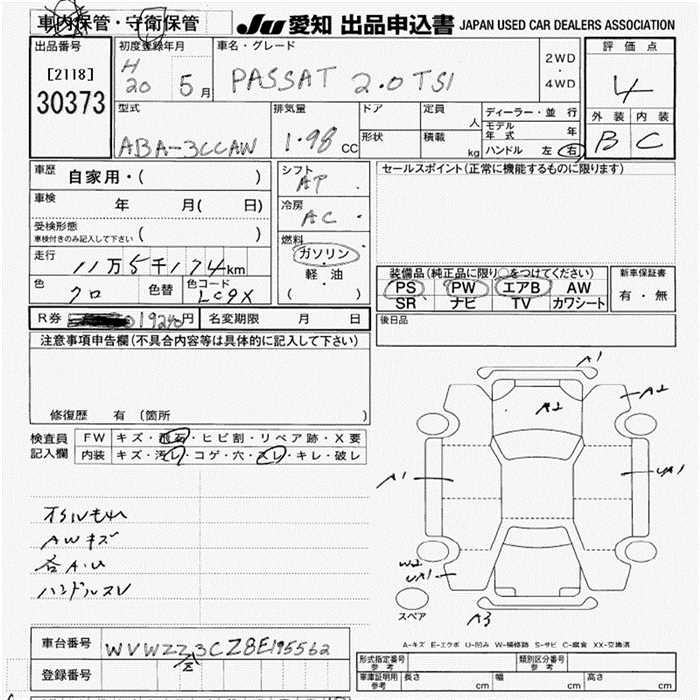 車内保管・守衛保管
JU 愛知 出品申込書 JAPAN USED CAR DEALERS ASSOCIATION
出品番号
[2118]
30373
初度登録年月
H
20 5 月
車名・グレード
PASSAT 2.0TSI
2WD
・
4WD
評価点
4
外装 内装
B C
型式
ABA-3CCAW
排気量
1.98 CC
ドア
形状
定員
人
積載
kg
ディーラー・並行
モデル年式 年
ハンドル 左 右
車歴
自家用・( )
車検
年 月( 日)
受検形態
車検付きのみ記入して下さい ( )
走行
11万5千174km
色
クロ
色替
色コード
LC9X
シフト
AT
冷房
AC
燃料
ガソリン
軽・油
( )
セールスポイント(正常に機能するものに限ります)
装備品(純正品に限り○をつけてください)
PS PW エアB AW
SR ナビ TV カワシート
新車保証書
有・無
後日品
R券 円
名変期限 月 日
注意事項申告欄(不具合内容等は具体的に記入して下さい)
修復歴 有 (箇所 )
検査員
記入欄
FW キズ・飛石・ヒビ割・リペア跡・X要
内装 キズ・汚レ・コゲ・穴・スレ・キレ・破レ
AWキズ
各A・U
ハンドルスレ
A1
A2
A2
A1
UA1
W2
UA1
A3
スペア
A-キズ E-エクボ U-凹み W-補修跡 S-サビ C-腐食 XX-交換済
車台番号
WVWZZZ3CZ8E195562
登録番号
形式指定番号
参考
類別区分番号
参考
車庫証明用
参考
長さ cm 幅 cm 高さ cm